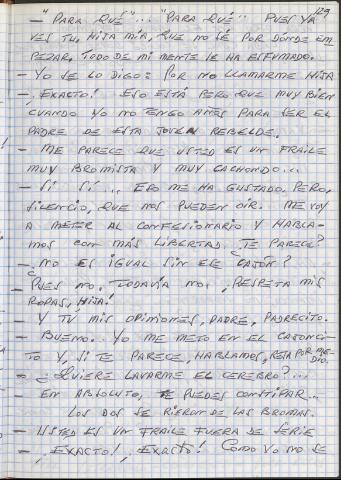 129
- "PARA QUÉ"... "PARA QUÉ" PUES YA
VES TU, HIJA MÍA, QUE NO SÉ POR DÓNDE EM
PEZAR. TODO DE MI MENTE SE HA ESFUMADO.
- YO SE LO DIGO: POR NO LLAMARME HIJA
- ¡EXACTO! ESO ESTÁ PERO QUE MUY BIEN
CUANDO YO NO TENGO AÑOS PARA SER EL
PADRE DE ESTA JOVEN REBELDE.
- ME PARECE QUE USTED ES UN FRAILE
MUY BROMISTA Y MUY CACHONDO...
- SÍ SÍ... ESO ME HA GUSTADO. PERO,
SILENCIO, QUE NOS PUEDEN OIR. ME VOY
A METER AL CONFESIONARIO Y HABLA-
MOS CON MÁS LIBERTAD. ¿TE PARECE?
- ¿NO ES IGUAL SIN ESE CAJÓN?
- PUES NO, TODAVÍA NO. ¡RESPETA MIS
ROPAS, HIJA!
- Y TÚ MIS OPINIONES, PADRE, PADRECITO.
- BUENO. YO ME METO EN EL CAJONCI-
TO Y, SI TE PARECE, HABLAMOS, REJA POR ME-
DIO.
- ¿QUIERE LAVARME EL CEREBRO?...
- EN ABSOLUTO, TE PUEDES CONSTIPAR...
LOS DOS SE RIERON DE LAS BROMAS.
- USTED ES UN FRAILE FUERA DE SERIE
- ¡EXACTO! ¡EXACTO! COMO YO NO SE